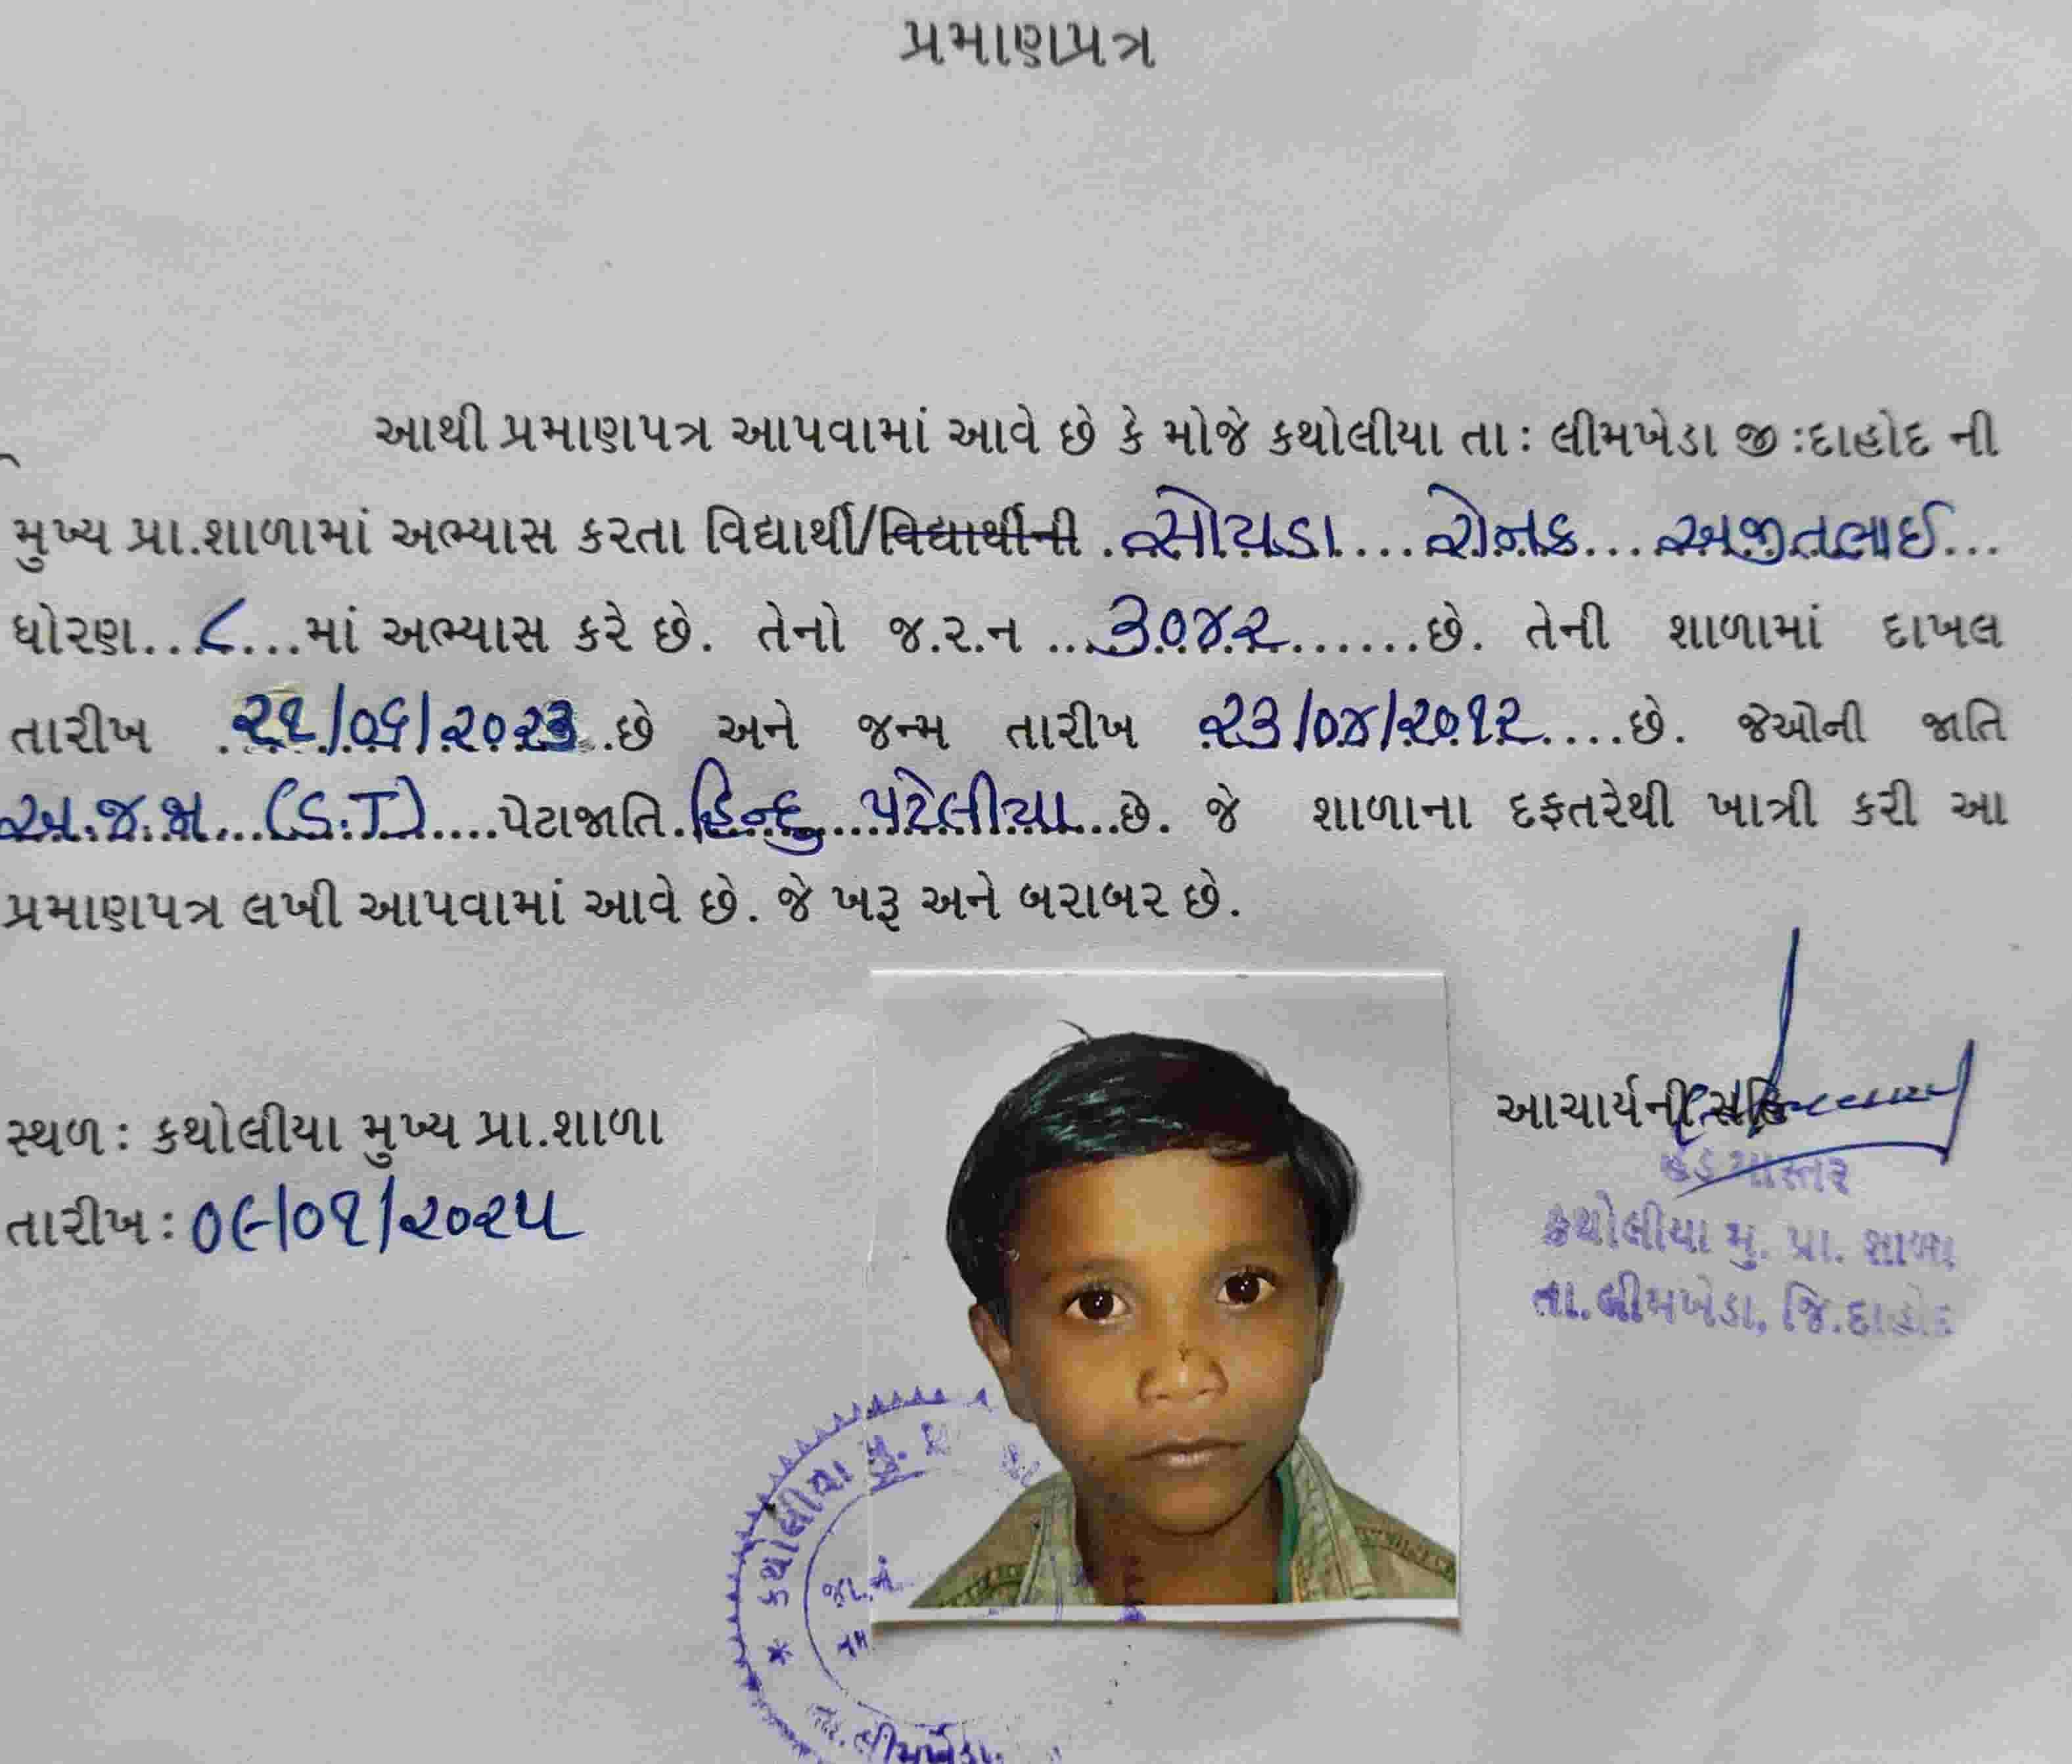 પ્રમાણપત્ર
આથી પ્રમાણપત્ર આપવામાં આવે છે કે મોજે કથોલીયા તા: લીમખેડા જી :દાહોદ ની
મુખ્ય પ્રા.શાળામાં અભ્યાસ કરતા વિદ્યાર્થી/વિદ્યાર્થીની .સોયડા....રોનક....અજીતભાઈ...
ધોરણ...૮...માં અભ્યાસ કરે છે. તેનો જ.ર.ન ...૩૦૪૨.......છે. તેની શાળામાં દાખલ
તારીખ .૨૧/૦૬/૨૦૨૩..છે અને જન્મ તારીખ ૨૩/૦૪/૨૦૧૨.....છે. જેઓની જાતિ
અ.જ.જા...(S.T).....પેટાજાતિ.હિન્દુ....પટેલીયા...છે. જે શાળાના દફતરેથી ખાત્રી કરી આ
પ્રમાણપત્ર લખી આપવામાં આવે છે. જે ખરૂ અને બરાબર છે.
આચાર્યની સહિ
સ્થળ: કથોલીયા મુખ્ય પ્રા.શાળા
તારીખ: ૦૯/૦૧/૨૦૨૫
હેડ માસ્તરૂ
કથોલીયા મુ. પ્રા. શાળા
તા.લીમખેડા, જિ.દાહોદ
* કથોલીયા મુ. પ્રા
જા.નં.
તા.લીમખેડા